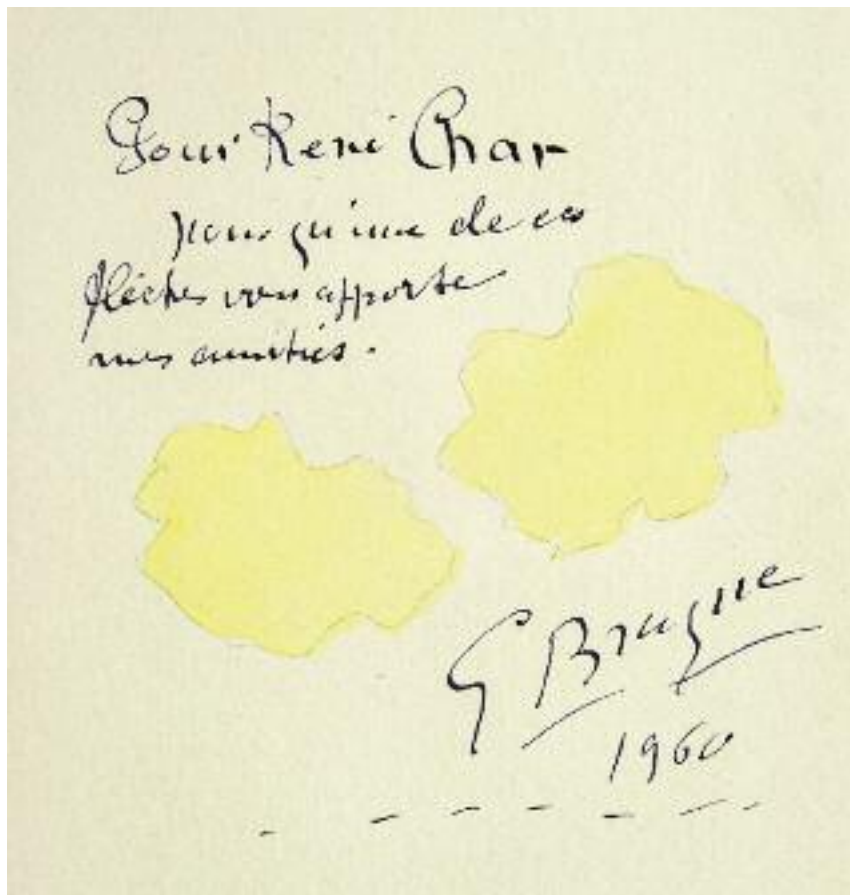 Pour René Char
pour qu'une de ces
flèches vous apporte
mes amitiés.
G Braque
1960